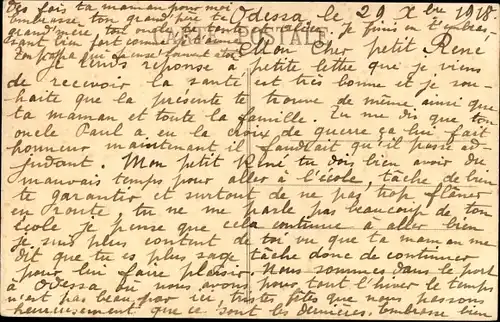 des fois ta maman pour moi
embrasse, ton grand père ta
grand'mère, ton oncle, ta tante
Odessa, le 20 Xbre 1918
je finis en t'embras-
sant bien fort comme
Ton papa qui pense souvent à toi
CARTE POSTALE
Mon Cher petit René
Je rends réponse à ta petite lettre que je viens
de recevoir la santé est très bonne et je sou-
haite que la présente te trouve de même ainsi que
ta maman et toute la famille. Tu me dis que ton
oncle Paul a eu la croix de guerre ça lui fait
honneur maintenant il faudrait qu'il passe ad-
judant. Mon petit René tu dois bien avoir du
mauvais temps pour aller à l'école, tâche de bien
te garantir et surtout de ne pas trop flâner
en route, tu ne me parle pas beaucoup de ton
école je pense que cela continue à aller bien
je suis plus content de toi vu que ta maman me
dit que tu es plus sage tâche donc de continuer
pour lui faire plaisir. Nous sommes dans le port
à Odessa où nous avons pour tout l'hiver le temps
n'est pas beau par ici, tristes fêtes que nous passons
heureusement que ce sont les dernières, embrasse bien